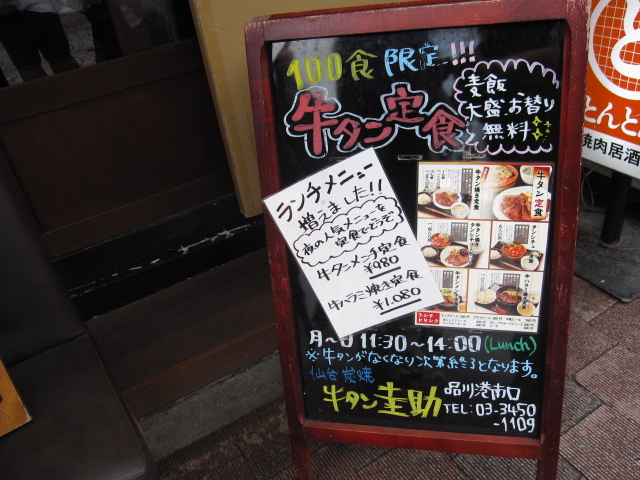 100食 限定!!!
牛タン定食
麦飯
大盛・お替り
無料
ランチメニュー
増えました!!
夜の人気メニューを
定食でどうぞ
牛タンメンチ定食
¥980
牛ハラミ焼き定食
¥1.080
牛タン定食
ランチ
ドリンク
月〜日 11:30〜14:00 (Lunch)
※牛タンがなくなり次第終了となります。
仙台炭焼
牛タン圭助
品川港南口
TEL:03-3450
-1109
とんと
焼肉居酒